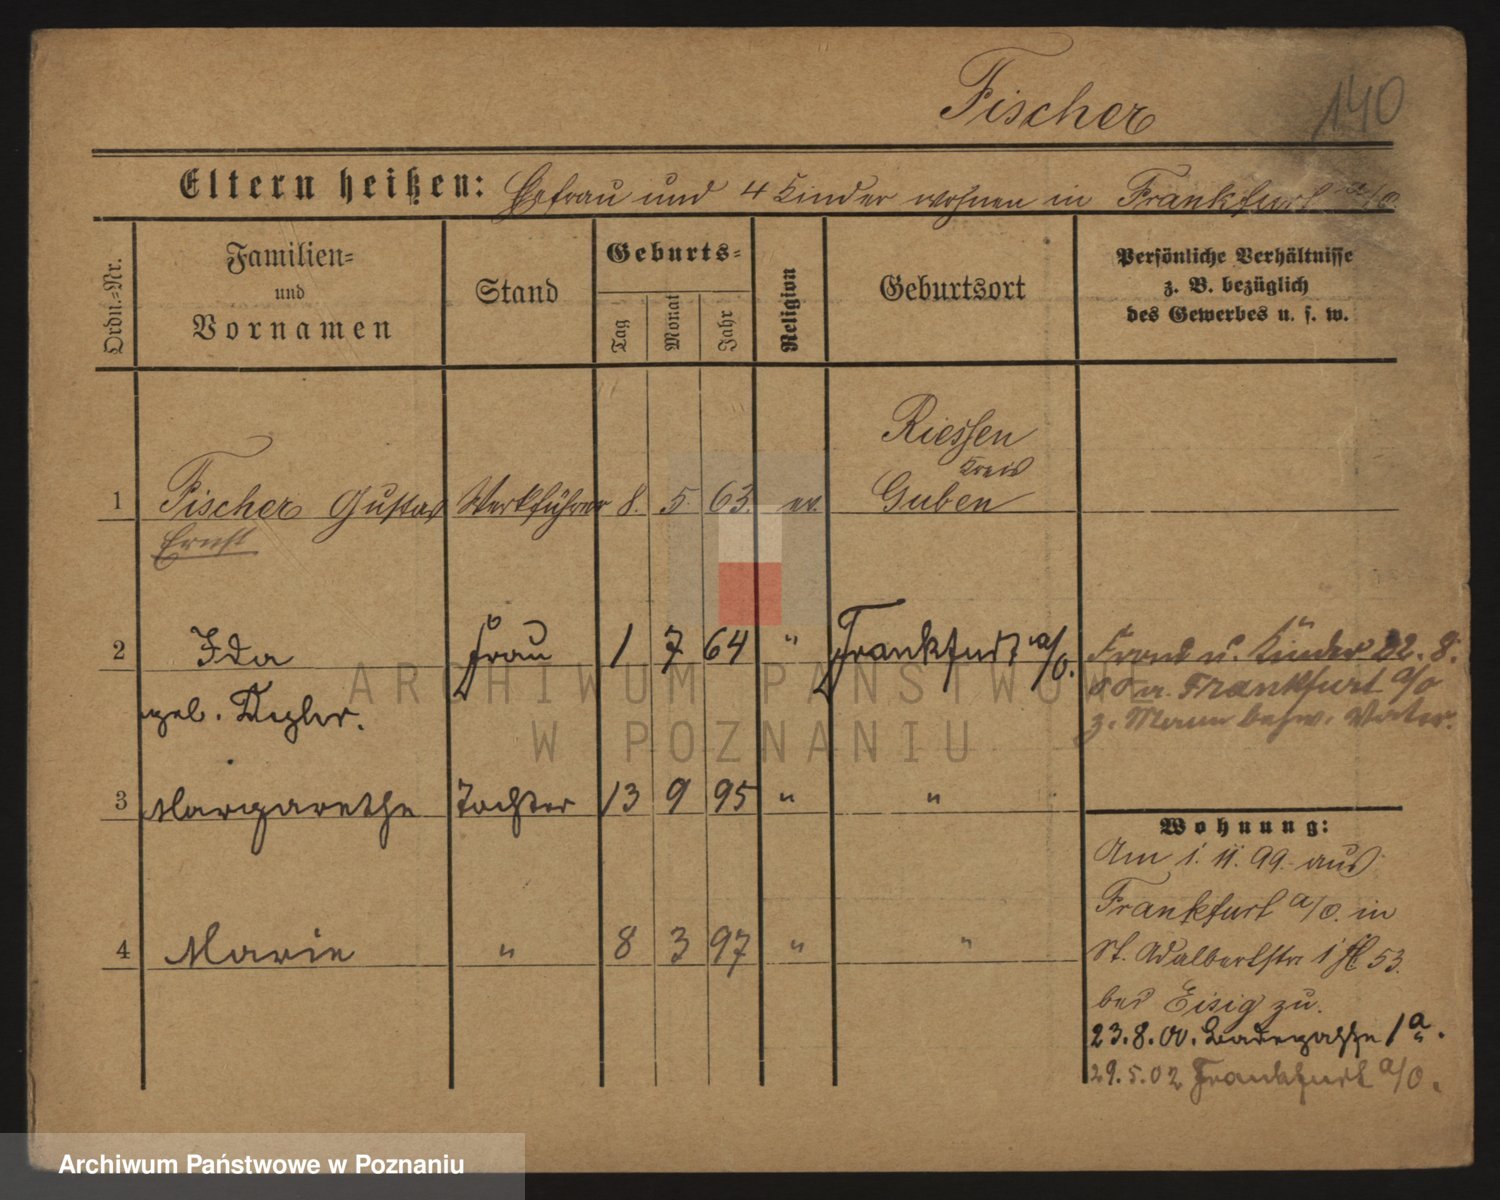 Fischer 140
Eltern heißen: Ehefrau und 4 Kinder wohnen in Frankfurt a/O
Ordn.=Nr.
Familien=
und
Vornamen
Stand
Geburts=
Tag
Monat
Jahr
Religion
Geburtsort
Persönliche Verhältnisse
z. B. bezüglich
des Gewerbes u. s. w.
Riessen
Kreis
1 Fischer Gustav Werkführer 8. 5. 63. ev. Guben
Ernst
2 Ida Frau 1 7 64 " Frankfurt a/O.
geb.
Frau u. Kinder 22. 8.
00 a. Frankfurt a/O
z. Mann bezw. Vater.
3 Margarethe Tochter 13 9 95 " "
Wohnung:
Am 1. 11. 99. aus
Frankfurt a/O. in
4 Marie " 8 3 97 " "
St. Adalbertstr 53.
bei Eisig zu.
23. 8. 00. 1a.
29. 5. 02 Frankfurt a/O.
ARCHIWUM PAŃSTWOWE
W POZNANIU
Archiwum Państwowe w Poznaniu